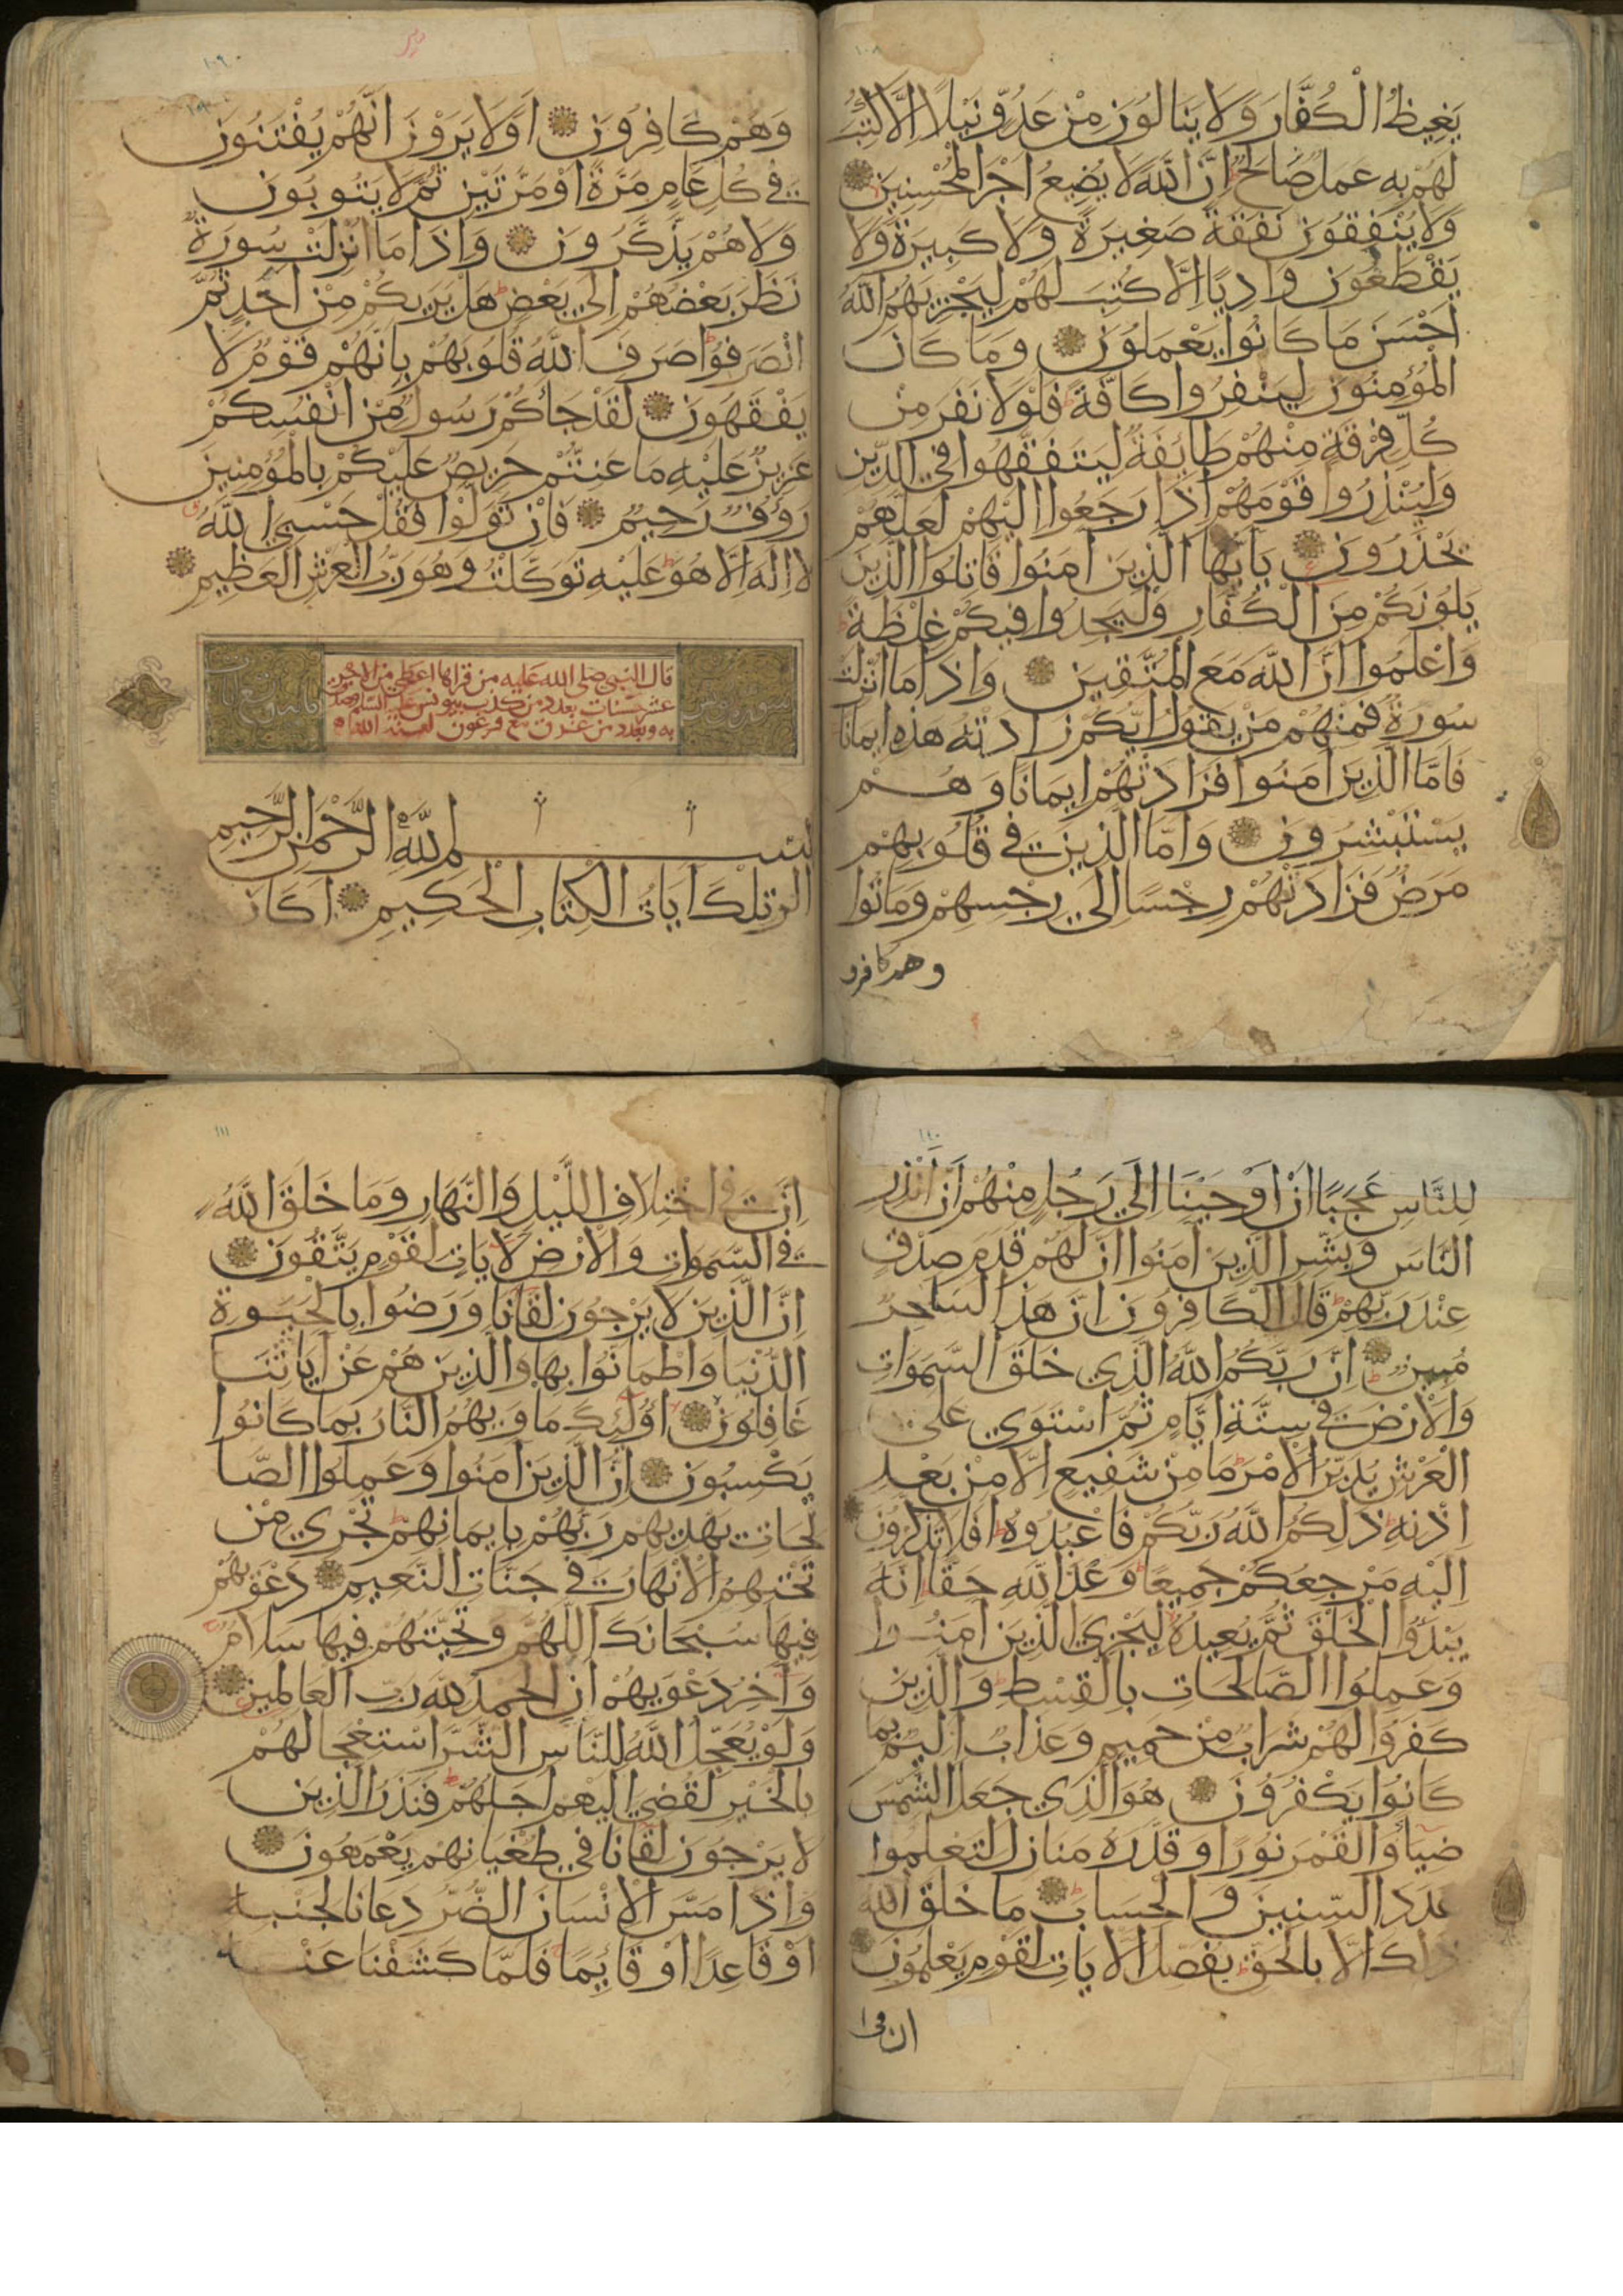 ١٠٨
يَغِيظُ الْكُفَّارَ وَلَا يَنَالُونَ مِنْ عَدُوٍّ نَيْلًا إِلَّا كُتِبَ
لَهُمْ بِهِ عَمَلٌ صَالِحٌ إِنَّ اللَّهَ لَا يُضِيعُ أَجْرَ الْمُحْسِنِينَ
وَلَا يُنْفِقُونَ نَفَقَةً صَغِيرَةً وَلَا كَبِيرَةً وَلَا
يَقْطَعُونَ وَادِيًا إِلَّا كُتِبَ لَهُمْ لِيَجْزِيَهُمُ اللَّهُ
أَحْسَنَ مَا كَانُوا يَعْمَلُونَ وَمَا كَانَ
الْمُؤْمِنُونَ لِيَنْفِرُوا كَافَّةً فَلَوْلَا نَفَرَ مِنْ
كُلِّ فِرْقَةٍ مِنْهُمْ طَائِفَةٌ لِيَتَفَقَّهُوا فِي الدِّينِ
وَلِيُنْذِرُوا قَوْمَهُمْ إِذَا رَجَعُوا إِلَيْهِمْ لَعَلَّهُمْ
يَحْذَرُونَ يَا أَيُّهَا الَّذِينَ آمَنُوا قَاتِلُوا الَّذِينَ
يَلُونَكُمْ مِنَ الْكُفَّارِ وَلْيَجِدُوا فِيكُمْ غِلْظَةً
وَاعْلَمُوا أَنَّ اللَّهَ مَعَ الْمُتَّقِينَ وَإِذَا مَا أُنْزِلَتْ
سُورَةٌ فَمِنْهُمْ مَنْ يَقُولُ أَيُّكُمْ زَادَتْهُ هَذِهِ إِيمَانًا
فَأَمَّا الَّذِينَ آمَنُوا فَزَادَتْهُمْ إِيمَانًا وَهُمْ
يَسْتَبْشِرُونَ وَأَمَّا الَّذِينَ فِي قُلُوبِهِمْ
مَرَضٌ فَزَادَتْهُمْ رِجْسًا إِلَى رِجْسِهِمْ وَمَاتُوا
وهم كافرو
١٠٩
وَهُمْ كَافِرُونَ أَوَلَا يَرَوْنَ أَنَّهُمْ يُفْتَنُونَ
فِي كُلِّ عَامٍ مَرَّةً أَوْ مَرَّتَيْنِ ثُمَّ لَا يَتُوبُونَ
وَلَا هُمْ يَذَّكَّرُونَ وَإِذَا مَا أُنْزِلَتْ سُورَةٌ
نَظَرَ بَعْضُهُمْ إِلَى بَعْضٍ هَلْ يَرَيكُمْ مِنْ أَحَدٍ ثُمَّ
انْصَرَفُوا صَرَفَ اللَّهُ قُلُوبَهُمْ بِأَنَّهُمْ قَوْمٌ لَا
يَفْقَهُونَ لَقَدْ جَاءَكُمْ رَسُولٌ مِنْ أَنْفُسِكُمْ
عَزِيزٌ عَلَيْهِ مَا عَنِتُّمْ حَرِيصٌ عَلَيْكُمْ بِالْمُؤْمِنِينَ
رَؤُفٌ رَحِيمٌ فَإِنْ تَوَلَّوْا فَقُلْ حَسْبِيَ اللَّهُ
لَا إِلَهَ إِلَّا هُوَ عَلَيْهِ تَوَكَّلْتُ وَهُوَ رَبُّ الْعَرْشِ الْعَظِيمِ
سورة يونس
قال النبي صلى الله عليه من قرأها اعطي من الاجر
عشر حسنات بعدد من كذب بيونس عليه السلم وصدق
به وبعدد من غرق مع فرعون لعنة الله
بِسْمِ اللَّهِ الرَّحْمَنِ الرَّحِيمِ
الر تِلْكَ آيَاتُ الْكِتَابِ الْحَكِيمِ أَكَانَ
١١٠
لِلنَّاسِ عَجَبًا أَنْ أَوْحَيْنَا إِلَى رَجُلٍ مِنْهُمْ أَنْ أَنْذِرِ
النَّاسَ وَبَشِّرِ الَّذِينَ آمَنُوا أَنَّ لَهُمْ قَدَمَ صِدْقٍ
عِنْدَ رَبِّهِمْ قَالَ الْكَافِرُونَ إِنَّ هَذَا لَسَاحِرٌ
مُبِينٌ إِنَّ رَبَّكُمُ اللَّهُ الَّذِي خَلَقَ السَّمَوَاتِ
وَالْأَرْضَ فِي سِتَّةِ أَيَّامٍ ثُمَّ اسْتَوَى عَلَى
الْعَرْشِ يُدَبِّرُ الْأَمْرَ مَا مِنْ شَفِيعٍ إِلَّا مِنْ بَعْدِ
إِذْنِهِ ذَلِكُمُ اللَّهُ رَبُّكُمْ فَاعْبُدُوهُ أَفَلَا تَذَكَّرُونَ
إِلَيْهِ مَرْجِعُكُمْ جَمِيعًا وَعْدَ اللَّهِ حَقًّا إِنَّهُ
يَبْدَؤُا الْخَلْقَ ثُمَّ يُعِيدُهُ لِيَجْزِيَ الَّذِينَ آمَنُوا
وَعَمِلُوا الصَّالِحَاتِ بِالْقِسْطِ وَالَّذِينَ
كَفَرُوا لَهُمْ شَرَابٌ مِنْ حَمِيمٍ وَعَذَابٌ أَلِيمٌ بِمَا
كَانُوا يَكْفُرُونَ هُوَ الَّذِي جَعَلَ الشَّمْسَ
ضِيَاءً وَالْقَمَرَ نُورًا وَقَدَّرَهُ مَنَازِلَ لِتَعْلَمُوا
عَدَدَ السِّنِينَ وَالْحِسَابَ مَا خَلَقَ اللَّهُ
ذَلِكَ إِلَّا بِالْحَقِّ يُفَصِّلُ الْآيَاتِ لِقَوْمٍ يَعْلَمُونَ
ان في ا
١١١
إِنَّ فِي اخْتِلَافِ اللَّيْلِ وَالنَّهَارِ وَمَا خَلَقَ اللَّهُ
فِي السَّمَوَاتِ وَالْأَرْضِ لَآيَاتٍ لِقَوْمٍ يَتَّقُونَ
إِنَّ الَّذِينَ لَا يَرْجُونَ لِقَاءَنَا وَرَضُوا بِالْحَيَوةِ
الدُّنْيَا وَاطْمَأَنُّوا بِهَا وَالَّذِينَ هُمْ عَنْ آيَاتِنَا
غَافِلُونَ أُولَئِكَ مَأْوَيهُمُ النَّارُ بِمَا كَانُوا
يَكْسِبُونَ إِنَّ الَّذِينَ آمَنُوا وَعَمِلُوا الصَّا
لِحَاتِ يَهْدِيهِمْ رَبُّهُمْ بِإِيمَانِهِمْ تَجْرِي مِنْ
تَحْتِهِمُ الْأَنْهَارُ فِي جَنَّاتِ النَّعِيمِ دَعْوَيهُمْ
فِيهَا سُبْحَانَكَ اللَّهُمَّ وَتَحِيَّتُهُمْ فِيهَا سَلَامٌ
وَآخِرُ دَعْوَيهُمْ أَنِ الْحَمْدُ لِلَّهِ رَبِّ الْعَالَمِينَ
وَلَوْ يُعَجِّلُ اللَّهُ لِلنَّاسِ الشَّرَّ اسْتِعْجَالَهُمْ
بِالْخَيْرِ لَقُضِيَ إِلَيْهِمْ أَجَلُهُمْ فَنَذَرُ الَّذِينَ
لَا يَرْجُونَ لِقَاءَنَا فِي طُغْيَانِهِمْ يَعْمَهُونَ
وَإِذَا مَسَّ الْإِنْسَانَ الضُّرُّ دَعَانَا لِجَنْبِهِ
أَوْ قَاعِدًا أَوْ قَائِمًا فَلَمَّا كَشَفْنَا عَنْهُ